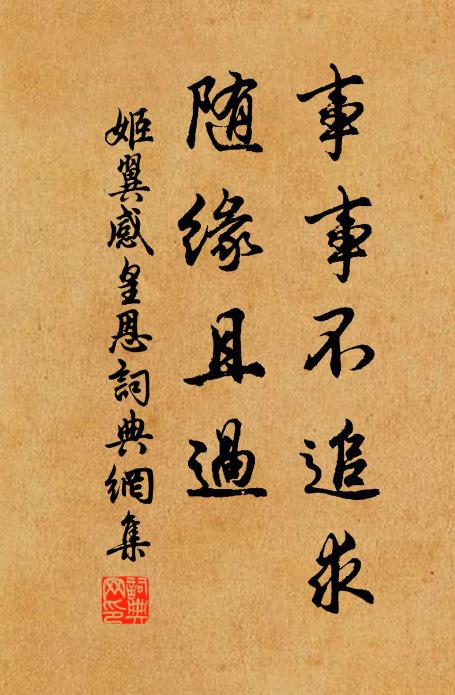 事事不追求
随缘且過
姬翼感皇恩詞典網集
詞典网印